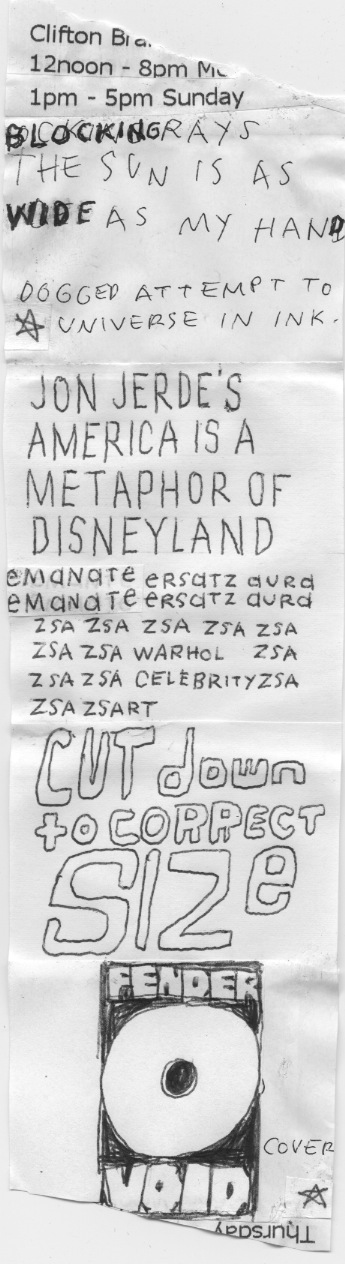 Clifton
12noon - 8pm
1pm - 5pm Sunday
BLOCKING RAYS
THE SUN IS AS
WIDE AS MY HAND
DOGGED ATTEMPT TO
UNIVERSE IN INK.
JON JERDE'S
AMERICA IS A
METAPHOR OF
DISNEYLAND
eMaNaTe eRSaTZ auRa
eMaNaTe eRSaTZ auRa
ZSA ZSA ZSA ZSA ZSA
ZSA ZSA WARHOL ZSA
ZSA ZSA CELEBRITY ZSA
ZSA ZSART
CUT down
to CORRECT
SIZe
FENDER
VOID
COVER
Thursday